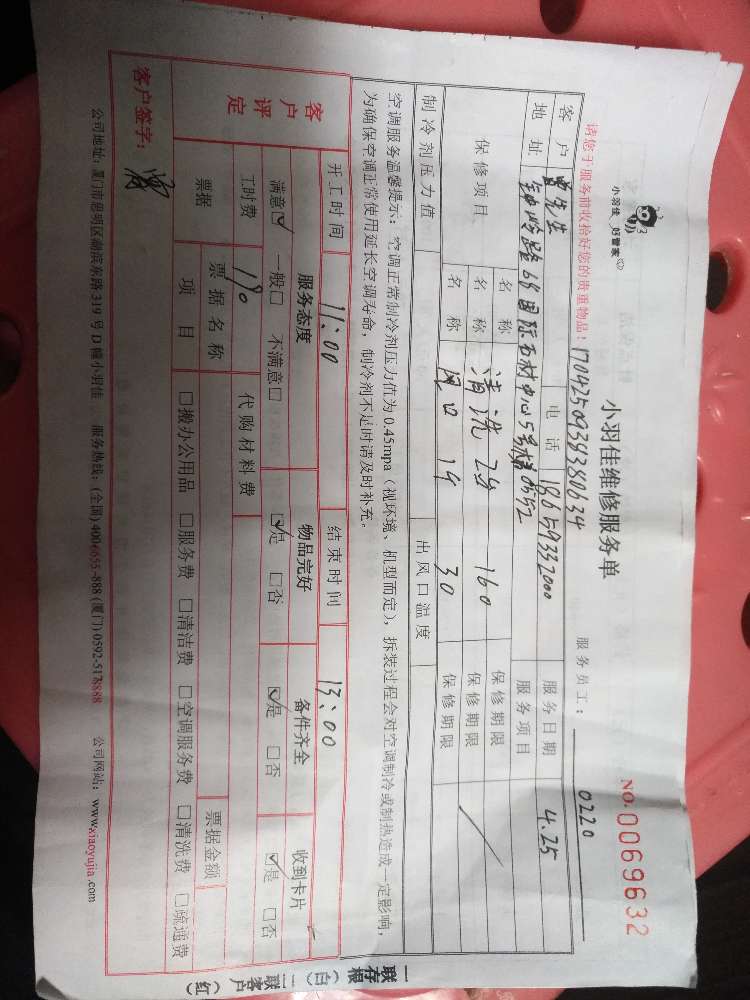 小羽佳 好管家
小羽佳维修服务单
NO.0069632
请您于服务前收拾好您的贵重物品!
17042509393380634
服务员工: 0220
客户 曾先生 电话 18659332000 服务日期 4.25
地址 钟岭路68国际石材中心5号楼 服务项目
保修项目 名称 保修期限
名称 清洗2台 160 保修期限
名称 风口1个 30 保修期限
制冷剂压力值 出风口温度
空调服务温馨提示:空调正常制冷剂压力值为0.45mpa(视环境、机型而定),拆装过程会对空调制冷或制热造成一定影响,
为确保空调正常使用延长空调寿命,制冷剂不足时请及时补充。
开工时间 11:00 结束时间 13:00
客户评定 服务态度 物品完好 备件齐全 收到卡片
满意☑ 一般□ 不满意□ ☑是 □否 ☑是 □否 ☑是 □否
工时费 190 代购材料费
票据 票据名称 票据金额
项目 □搬办公用品 □服务费 □清洁费 □空调服务费 □清洗费 □疏通费
客户签字:
公司地址:厦门市思明区湖滨东路319号D幢小羽佳 服务热线:(全国)4006655-888 (厦门)0592-5178888 公司网站:www.xiaoyujia.com
一联存根(白)二联客户(红)